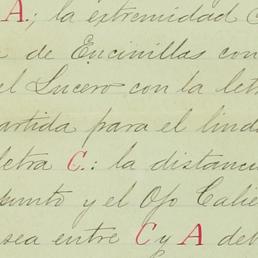 A.; la extremidad
de Encinillas con
el Lucero con la letr
artida para el lind
letra C.: la distanci
punto y el Ojo Calie
sea entre C y A deb